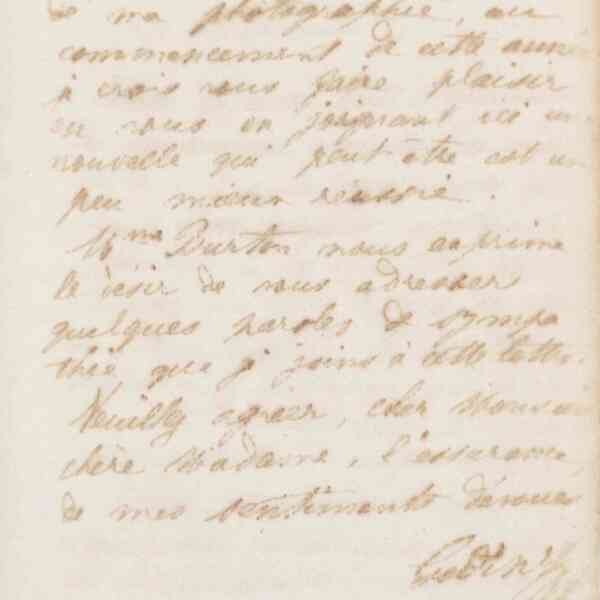 de ma photographie, au
commencement de cette année
je crois vous faire plaisir
en vous en joignant ici une
nouvelle qui peut-être est un
peu mieux réussie.
Mme Burton nous exprime
le désir de vous adresser
quelques paroles de sympa
thie que je joins à cette lettre.
Veuillez agréer, cher Monsieur
chère Madame, l'assurance
de mes sentiments dévoués
Godin